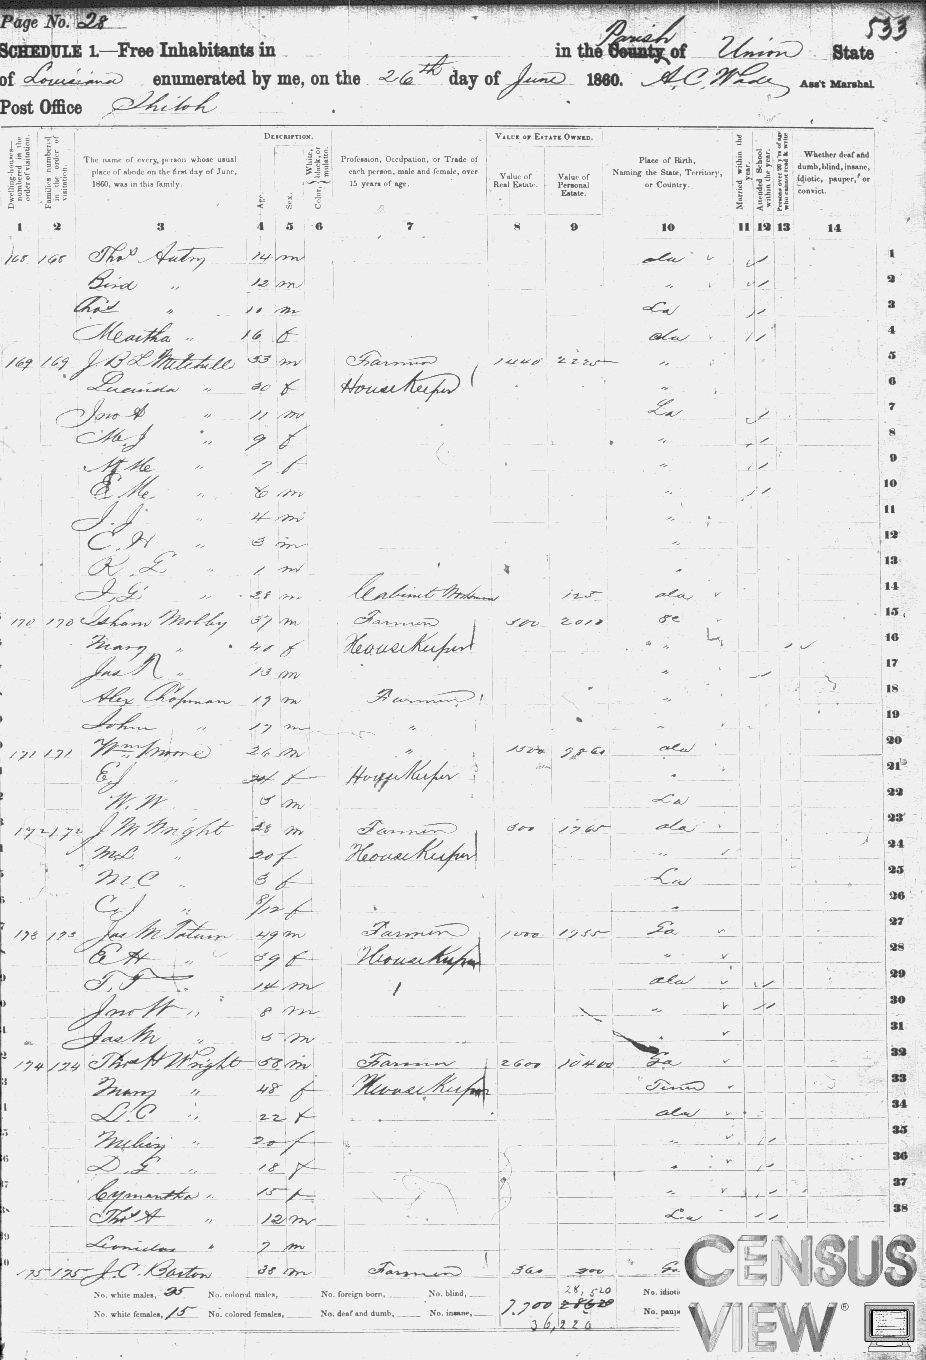 Page No. 28
533
SCHEDULE 1.—Free Inhabitants in in the County Parish of Union State
of Louisiana enumerated by me, on the 26th day of June 1860. A. C. Wade Ass't Marshal
Post Office Shiloh
Dwelling-houses— numbered in the order of visitation.
Families numbered in the order of visitation.
The name of every person whose usual place of abode on the first day of June, 1860, was in this family.
DESCRIPTION.
Age.
Sex.
Color, White, black, or mulatto.
Profession, Occupation, or Trade of each person, male and female, over 15 years of age.
VALUE OF ESTATE OWNED.
Value of Real Estate.
Value of Personal Estate.
Place of Birth, Naming the State, Territory, or Country.
Married within the year.
Attended School within the year.
Persons over 20 y'rs of age who cannot read & write
Whether deaf and dumb, blind, insane, idiotic, pauper, or convict.
1 2 3 4 5 6 7 8 9 10 11 12 13 14
168 168 Thos Autry 14 m ala 1
Bird " 12 m " 2
" 10 m La 3
Meartha " 16 f ala 4
169 169 J B L Mitchell 33 m Farmer 1440 2225 " 5
Lucinda " 30 f House Keeper " 6
Jno A " 11 m La 7
M. J " 9 f " 8
" 7 f " 9
E Me. " 6 m " 10
J. J. 4 m " 11
C. H " 3 m " 12
R G 1 m " 13
J. G. " 28 m Cabinet Workman 125 ala 14
170 170 Isham Molby 37 m Farmer 500 2010 Sc 15
Mary " 40 f House Keeper " 16
Jas R " 13 m " 17
Alex Chapman 19 m Farmer " 18
John " 17 m " " 19
171 171 Wm Moore 26 m " 1500 9860 ala 20
E J " 24 f House Keeper " 21
W. W 5 m La 22
172 172 J M Wright 28 m Farmer 300 1765 ala 23
M.L. " 20 f House Keeper " 24
M C " 3 f La 25
C J " 8/12 f " 26
173 173 Jas M Tatum 49 m Farmer 1000 1955 Ga 27
E H " 39 f House Keeper " 28
T. F " 14 m ala 29
Jno W " 8 m " 30
Jas M " 5 m " 31
174 174 Thos H Wright 58 m Farmer 2600 10400 Ga 32
Mary " 48 f House Keeper Tenn 33
L. C " 22 f ala 34
" 20 f " 35
D. G " 18 f " 36
Cymantha " 15 f " 37
Thos A " 12 m La 38
Leonidas " 7 m
175 175 J. C. Barton 38 m Farmer 360 300
No. white males, 25 No. colored males, No. foreign born, No. blind, 28,520 No. idiotic
No. white females, 15 No. colored females, No. deaf and dumb, No. insane, 7,700
36,220
CENSUS
VIEW®